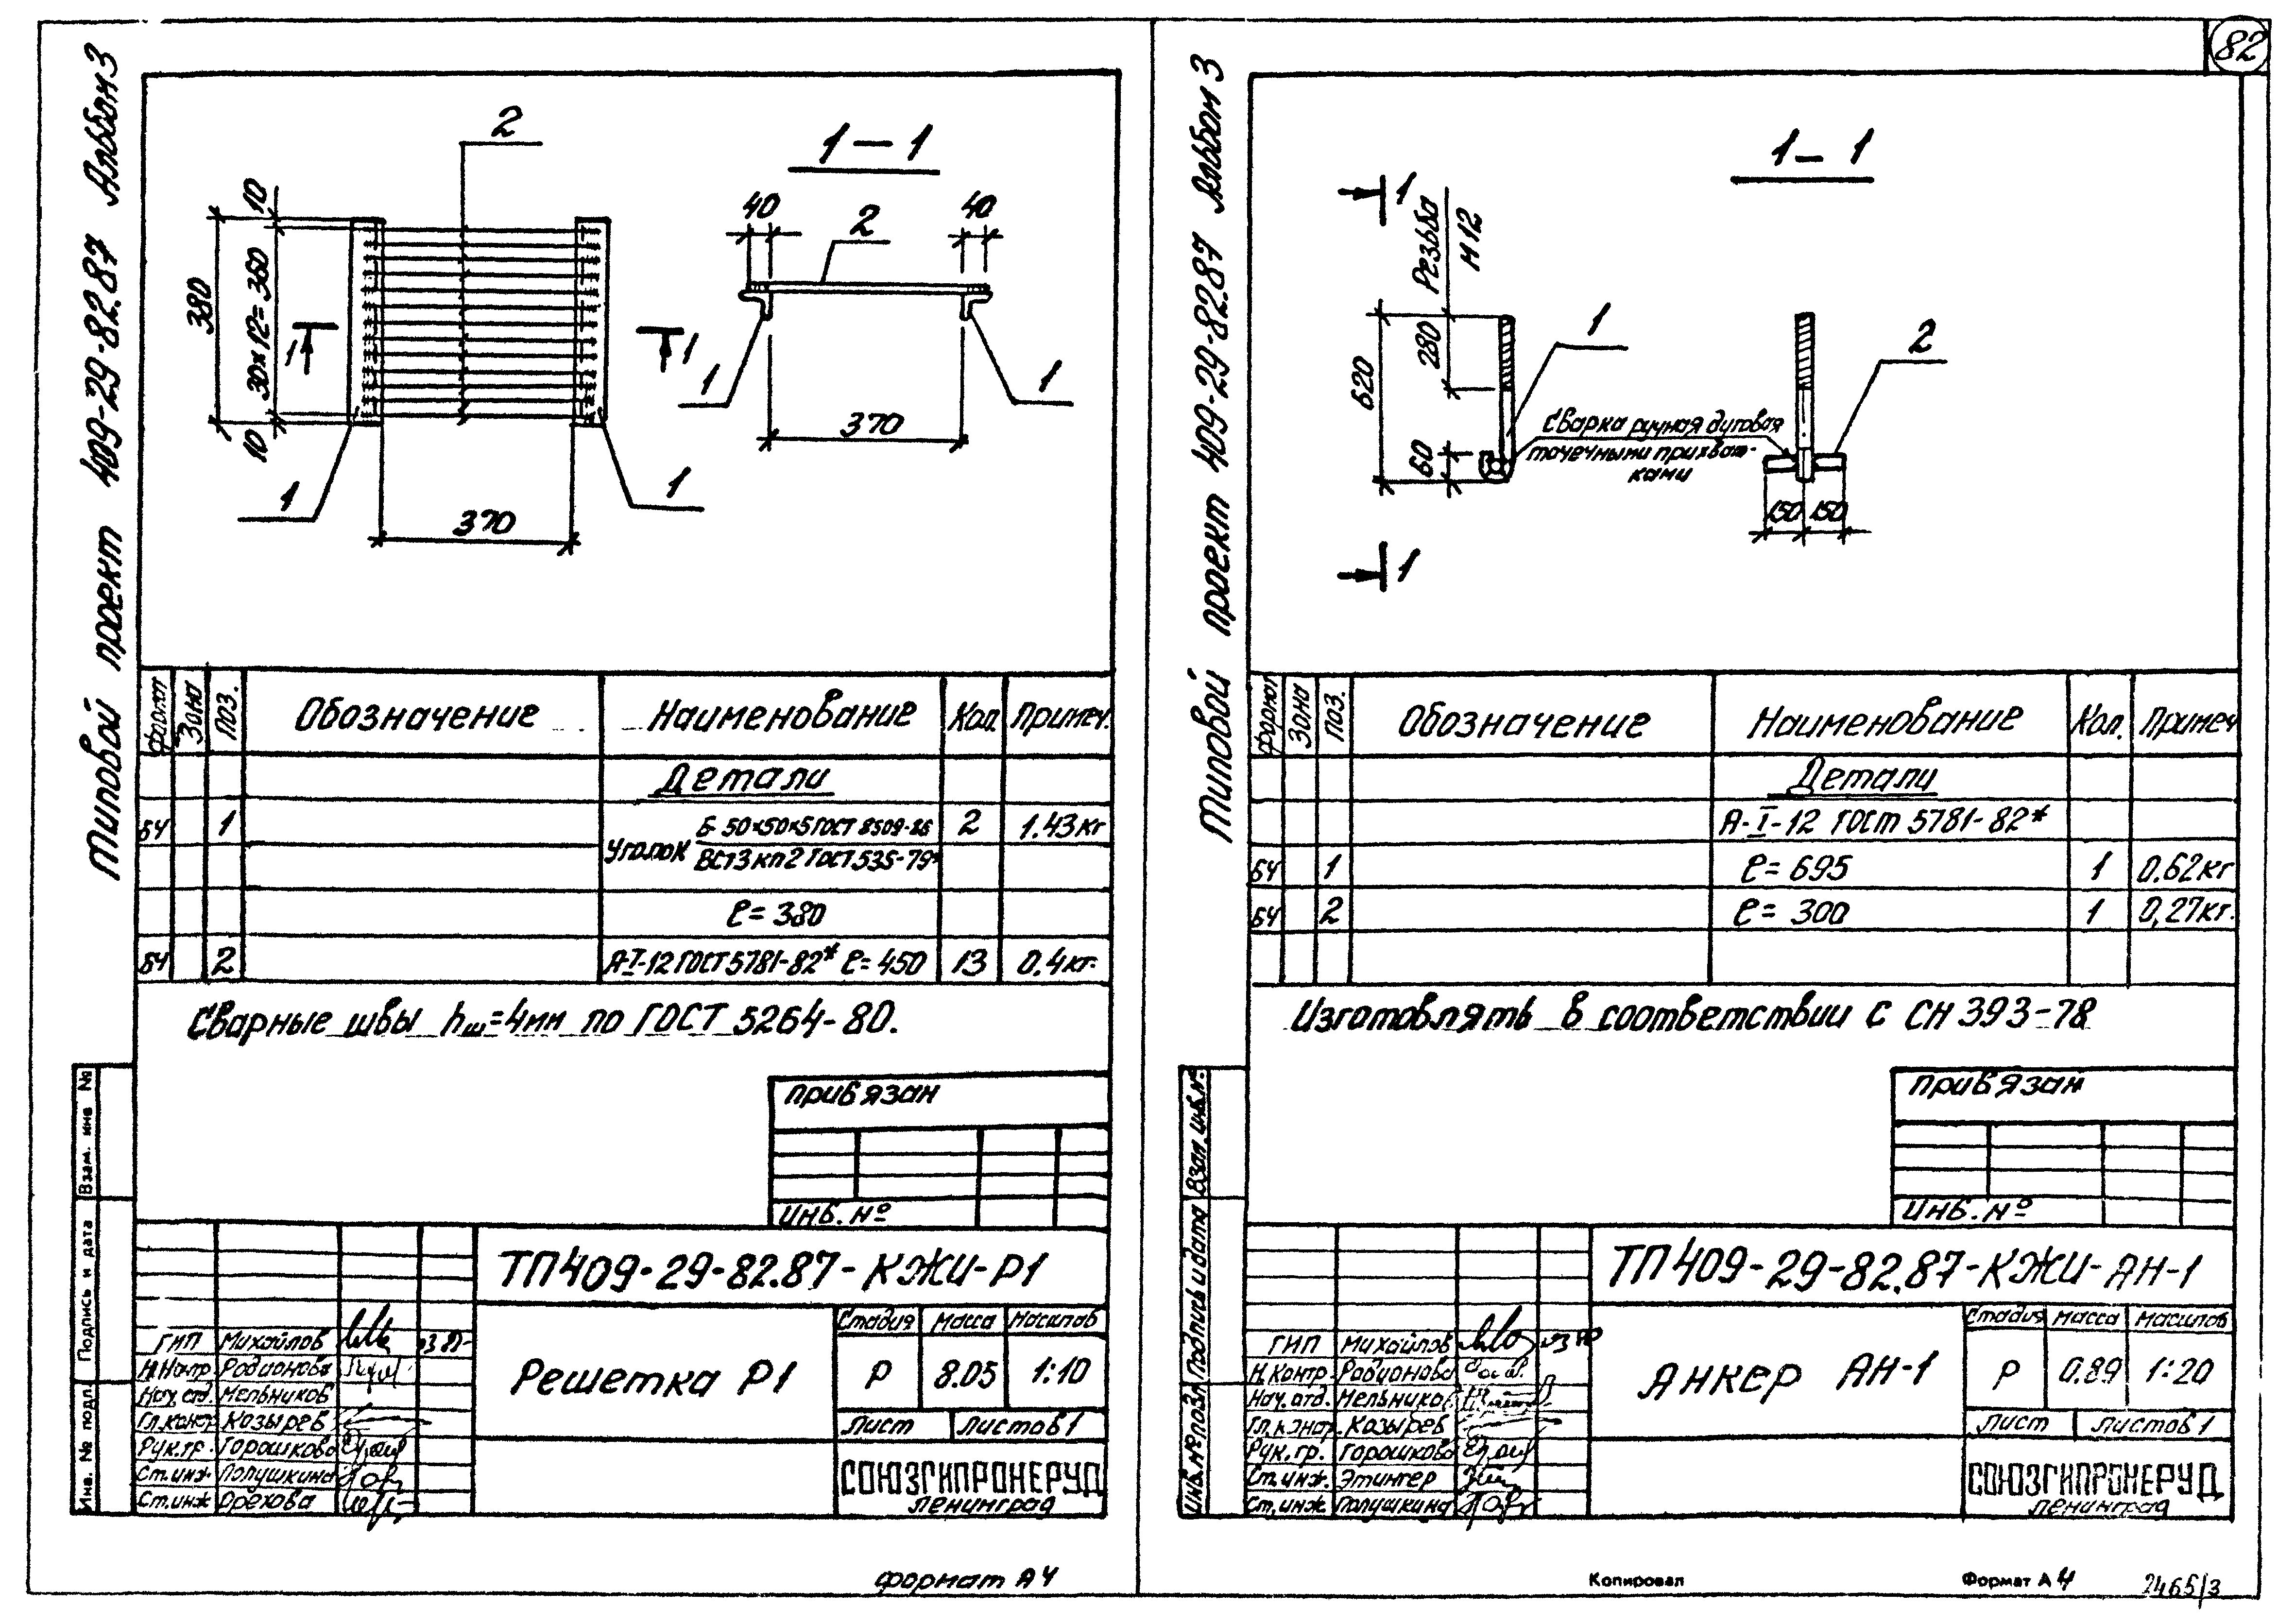 82
Типовой проект 409-29-82.87 Альбом 3
2
1-1
10
380
30x12=360
10
1
1
1
1
370
40
40
2
1
1
370
Формат
Зона
Поз.
Обозначение
Наименование
Кол.
Примеч.
Детали
БЧ 1 Уголок Б 50x50x5 ГОСТ 8509-86 2 1.43кг
ВСт3кп2 ГОСТ 535-79*
ℓ= 380
БЧ 2 А-I-12 ГОСТ 5781-82* ℓ= 450 13 0.4кг.
Сварные швы hш=4мм по ГОСТ 5264-80.
Привязан
Инв. №
Взам. инв №
Подпись и дата
Инв. № подл.
ТП409-29-82.87-КЖИ-Р1
ГИП Михайлов
Н.Контр Родионова
Нач.отд. Мельников
Гл.констр Козырев
Рук.гр. Горошкова
Ст.инж. Полушкина
Ст.инж Орехова
Решетка Р1
Стадия Масса Масштаб
Р 8.05 1:10
Лист Листов 1
СОЮЗГИПРОНЕРУД
Ленинград
Формат А4
Типовой проект 409-29-82.87 Альбом 3
1-1
1
Резьба
М12
280
620
60
1
2
Сварка ручная дуговая
точечными прихват-
ками
150 150
1
Формат
Зона
Поз.
Обозначение
Наименование
Кол.
Примеч
Детали
А-I-12 ГОСТ 5781-82*
БЧ 1 ℓ= 695 1 0.62кг
БЧ 2 ℓ= 300 1 0,27кг.
Изготовлять в соответствии с СН 393-78
Привязан
Инв. №
Взам. инв.№
Подпись и дата
Инв.№ подл
ТП409-29-82.87-КЖИ-АН-1
ГИП Михайлов
Н.Контр. Родионова
Нач.отд. Мельников
Гл.констр. Козырев
Рук.гр. Горошкова
Ст.инж. Этингер
Ст.инж Полушкина
Анкер АН-1
Стадия Масса Масштаб
Р 0.89 1:20
Лист Листов 1
СОЮЗГИПРОНЕРУД
Ленинград
Копировал
Формат А4
2465/3